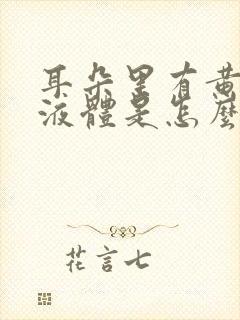 耳朵里有黄
液體是怎麼
花言七